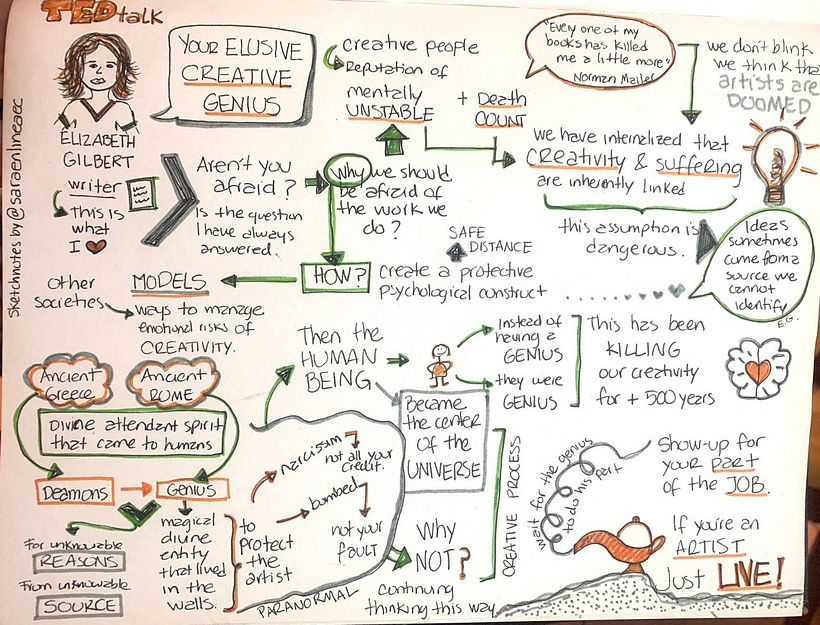 TED talk
YOUR ELUSIVE
CREATIVE
GENIUS
ELIZABETH
GILBERT
writer
This is
what
I
sketchnotes by @saraenlineaec
Aren't you
afraid?
Is the question
I have always
answered.
Why we should
be afraid of
the work we
do?
creative people
Reputation of
mentally
UNSTABLE
+ Death
COUNT
"Every one of my
books has killed
me a little more"
Norman Mailer
we don't blink
we think tha
artists are
DOOMED
we have internalized that
CREATIVITY & SUFFERING
are inherently linked
this assumption is
dangerous.
Ideas
sometimes
came from a
source we
cannot
identify
E.G.
SAFE
DISTANCE
HOW?
create a protective
psychological construct
MODELS
other
societies
ways to manage
emotional risks of
CREATIVITY.
Ancient
Greece
Ancient
ROME
Divine, attendant spirit
that came to humans
Deamons
GENIUS
For unknowable
REASONS
From unknowable
SOURCE
magical
divine
entity
that lived
in the
walls.
to
protect
the
artist
narcisism
not all your
credit.
bombed
not your
fault
PARANORMAL
Then the
HUMAN
BEING
Instead of
having a
GENIUS
they were
GENIUS
Became
the center
of the
UNIVERSE
This has been
KILLING
our creativity
for + 500 years
Why
NOT?
continuing
thinking this way
CREATIVE PROCESS
wait for the genius
to do his part
Show-up for
your part
of the JOB.
If you're an
ARTIST
Just LIVE!